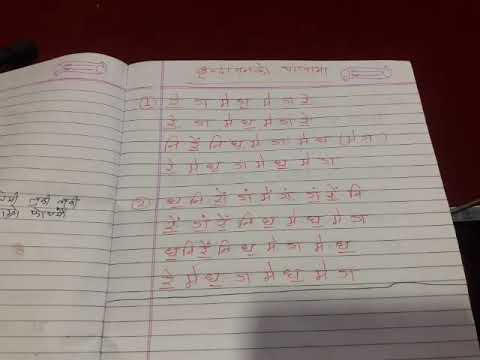 (1) रे ग मे ध॒ मे ग रे
रे॒ ग मे ध॒ मे ग रे॒
नि रे॒ं नि ध॒ मे ग मे ध (मे ग)
रे॒ मे ध॒ ग मे ध॒ मे ग
(2) ध॒ नि रें॒ गं में गं गं रें॒ नि
रें॒ गं रें॒ नि ध॒ मे ध॒ मे ग
ध॒ नि रें॒ नि ध॒ मे ग मे ध॒
रे॒ मे ध॒ ग मे ध॒ मे ग